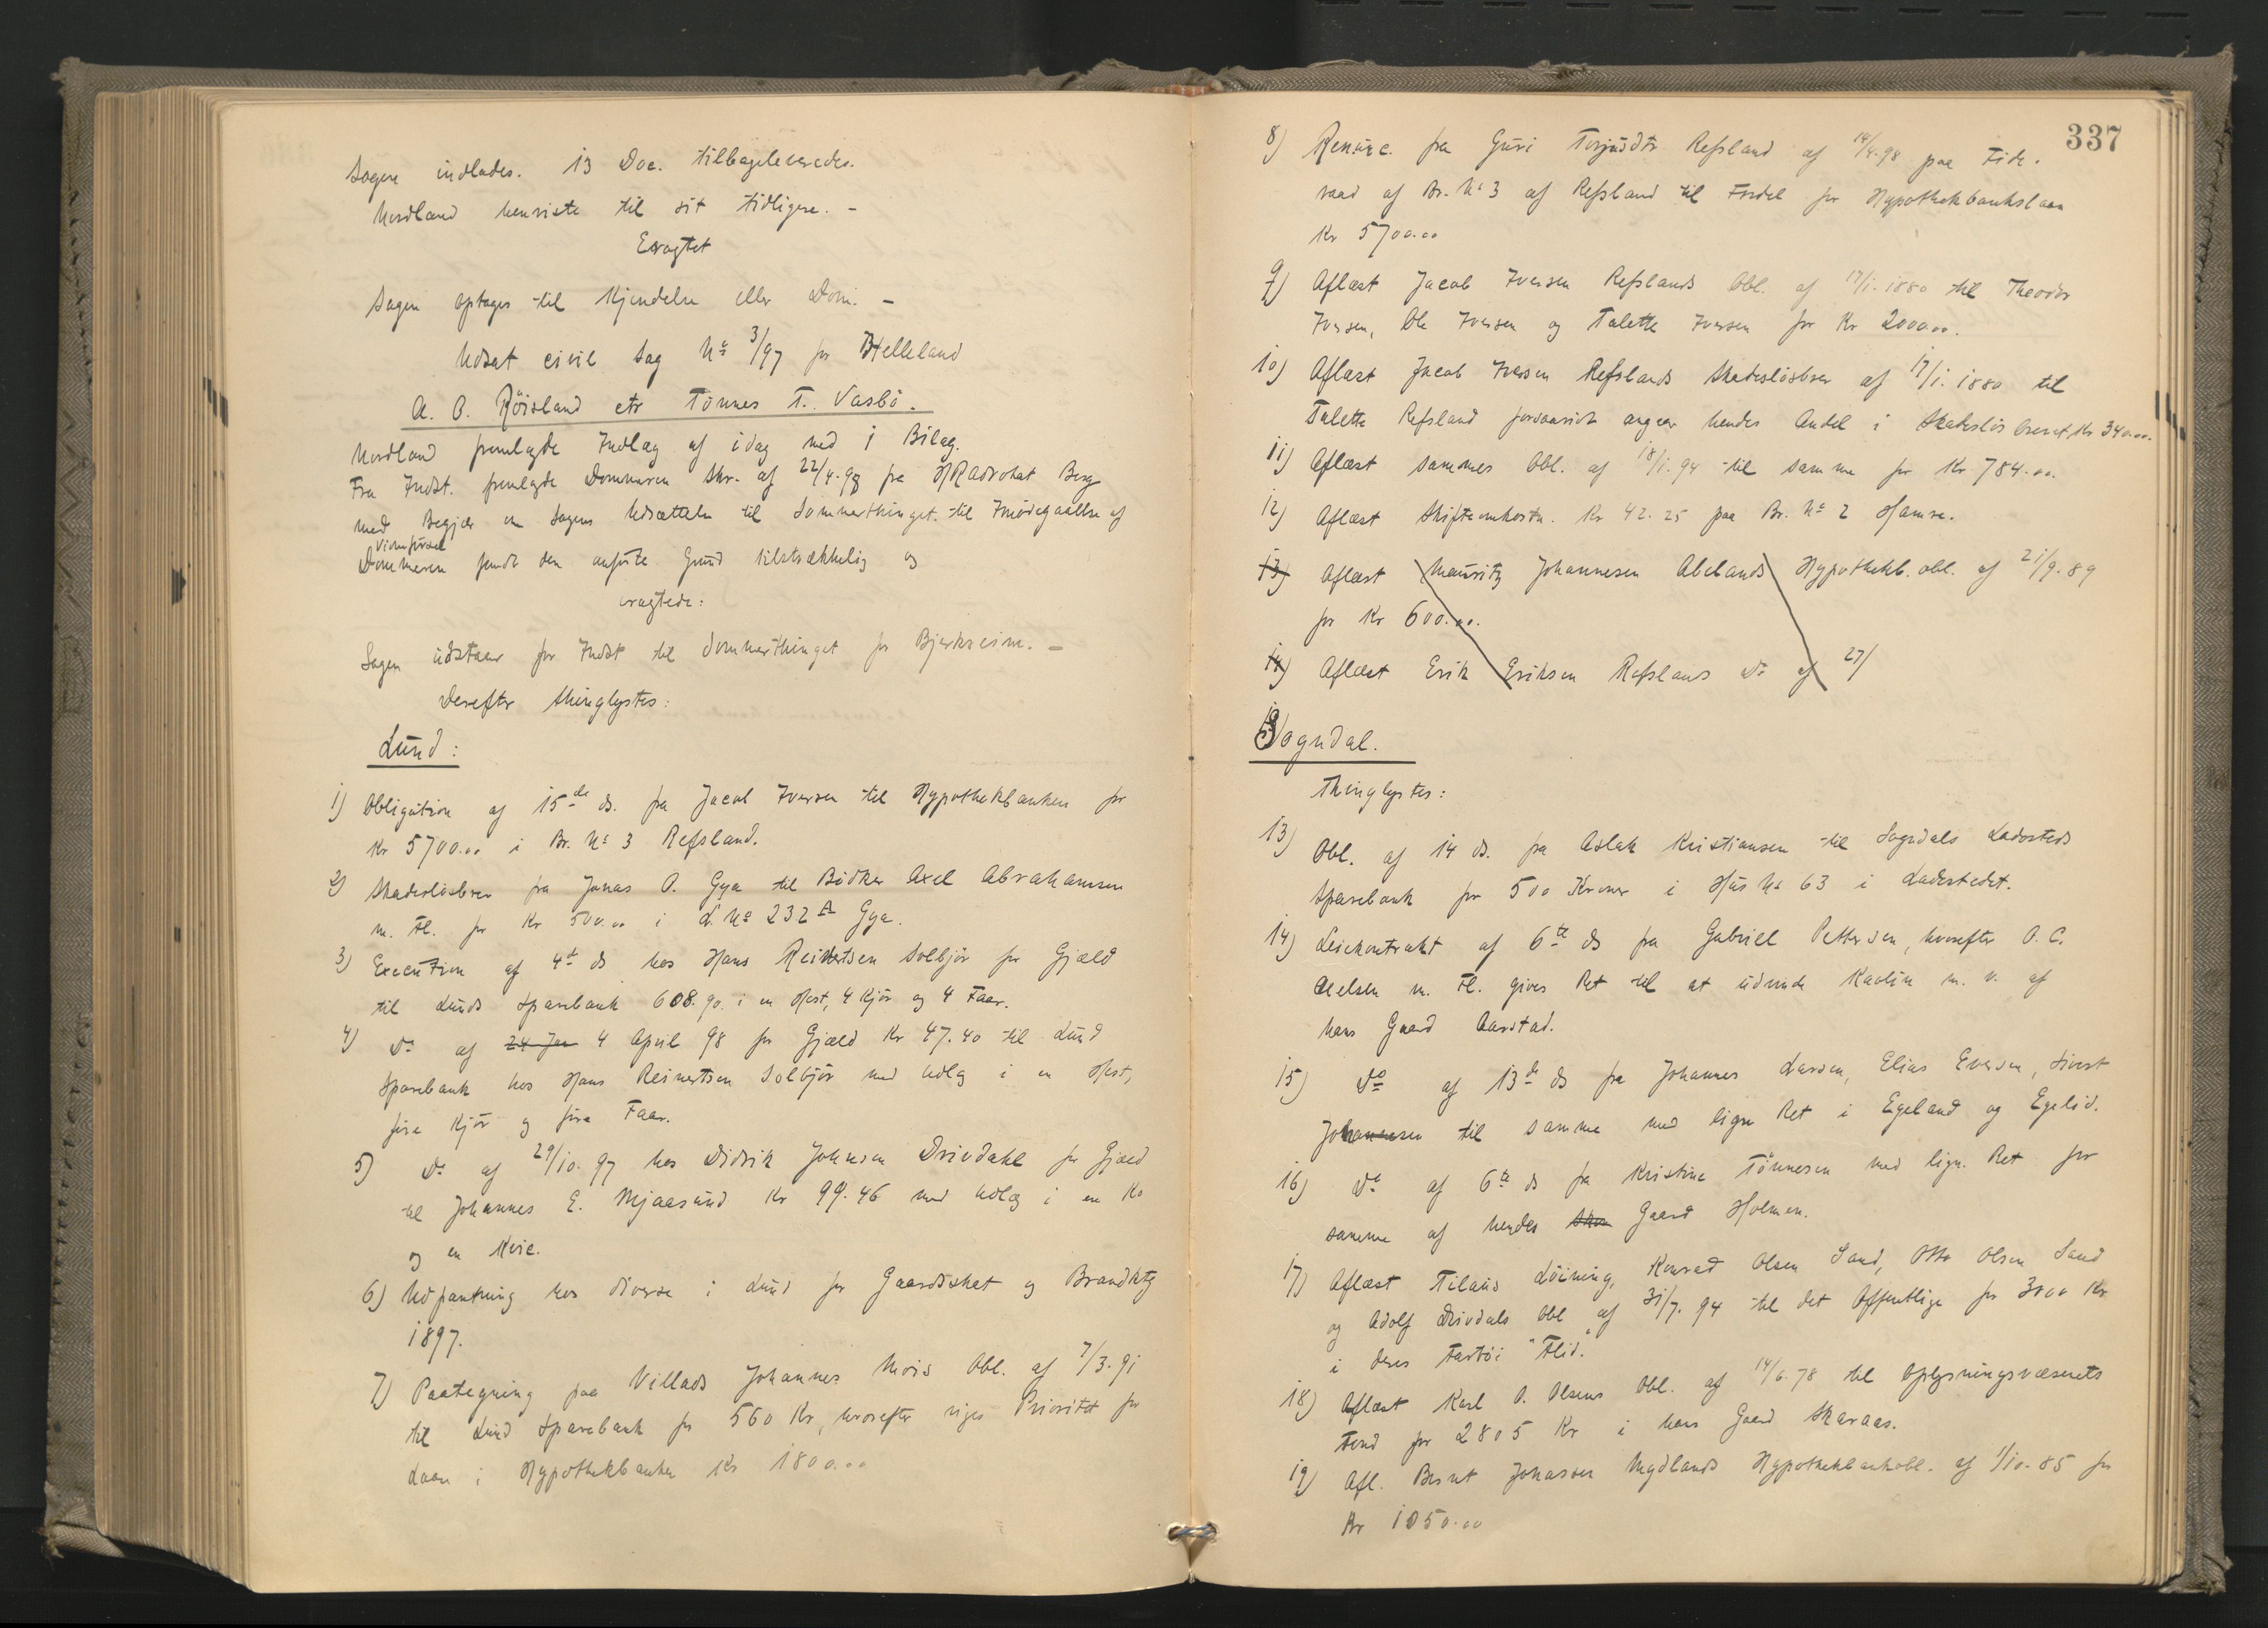 Sagen indlades. 13 Doc. tilbageleveredes.
Nordland henviste til sit tidligere. -
Eragtet
Sagen optages til Kjendelse eller Dom. -
Udsat civil Sag No 3/97 for Helleland
A. O. Röisland ctr Tönnes T. Vasbö.
Nordland fremlagde Indlæg af idag med 1 Bilag.
Fra Indst. fremlagde Dommeren Skr. af 22/4.98 fra HRadvokat Berg
med Begjær om Sagens Udsættelse til Sommerthinget til Imödegaaelse af
Vidneförsel
Dommeren fandt den anförte Grund tilstrækkelig og
eragtede:
Sagen udstaar for Indst til Sommerthinget for Bjerkreim. -
Derefter thinglystes:
Lund:
1) Obligation af 15de ds. fra Jacob Iversen til Hypothekbanken for
Kr 5700.00 i Br. No 3 Refsland.
2) Skadeslösbrev fra Jonas O. Gya til Bödker Axel Abrahamsen
m. Fl. for Kr 500.00 i L. No 232 A Gya.
3) Execution af 4de ds hos Hans Reinertsen Solbjör for Gjæld
til Lunds Sparebank 608.90 i en Hest, 4 Kjör og 4 Faar.
4) Do af 24 Jan 4 April 98 for Gjæld Kr 47.40 til Lund
Sparebank hos Hans Reinertsen Solbjör med Udlæg i en Hest,
fire Kjör og fire Faar.
5) Do af 29/10.97 hos Didrik Johnsen Drivdahl for Gjæld
til Johannes E. Mjaasund Kr 99.46 med Udlæg i en Ko
og en Kvie.
6) Udpantning hos diverse i Lund for Gaardskat og Brandktg
1897.
7) Paategning paa Villads Johannes Mois Obl. af 7/3.91
til Lund Sparebank for 560 Kr, hvorefter viges Prioritet for
Laan i Hypothekbanken Kr 1800.00
337
8) Renunc. fra Guri Torjusdtr Refsland af 14/4.98 paa Föde-
raad af Br. No 3 af Refsland til Fordel for Hypothekbankslaan
Kr 5700.00
9) Aflæst Jacob Iversen Refslands Obl. af 17/1.1880 til Theodor
Iversen, Ole Iversen og Talette Iversen for Kr 2000.00.
10) Aflæst Jacob Iversen Refslands Skadeslösbrev af 17/1.1880 til
Talette Refsland forsaavidt angaar hendes Andel i Skadeslösbrevet, Kr 340.00.
11) Aflæst sammes Obl. af 18/1.94 til samme for Kr 784.00.
12) Aflæst Skifteomkostn. Kr 42.25 paa Br. No 2 Hamre.
13) Aflæst Mauritz Johannesen Abelands Hypothekb. obl. af 21/9.89
for Kr 600.00.
14) Aflæst Erik Eriksen Refslands Do af 27/
Sogndal.
Thinglystes:
13) Obl. af 14 ds. fra Aslak Kristiansen til Sogndals Ladesteds
Sparebank for 500 Kroner i Hus No 63 i Ladestedet.
14) Leiekontrakt af 6te ds fra Gabriel Pettersen, hvorefter O. C.
Axelsen m. Fl. gives Ret til at udvinde Kaolin m. v. af
hans Gaard Aarstad.
15) Do af 13de ds fra Johannes Larsen, Elias Eversen, Sivert
Johannessen til samme med lign Ret i Egeland og Egelid.
16) Do af 6te ds fra Kristine Tönnesen med lign. Ret for
samme af hendes Gaard Holmen.
17) Aflæst Tilaus Löining, Konrad Olsen Sand, Otto Olsen Sand
og Adolf Drivdals Obl af 31/7.94 til det Offentlige for 3000 Kr
i deres Fartöi "Flid."
18) Aflæst Karl O. Olsens Obl. af 14/6.78 til Oplysningsvæsenets
Fond for 2805 Kr i hans Gaard Skaraas.
19) Afl. Bernt Jonassen Mydlands Hypothekbankobl. af 1/10.85 for
Kr 1050.00